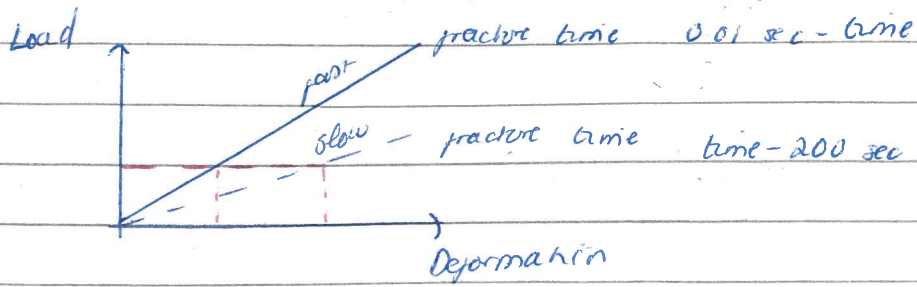 Load
fracture time 0.01 sec - time
fast
slow
fracture time time - 200 sec
Deformation